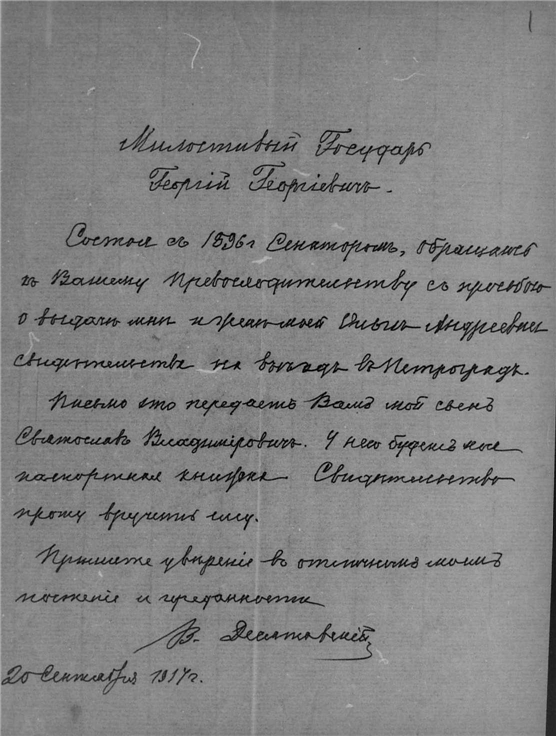 1
Милостивый Государь
Георгій Георгіевичъ.
Состоя съ 1896 г Сенаторомъ, обращаюсь
къ Вашему Превосходительству съ просьбою
о выдачѣ мнѣ и женѣ моей Ольгѣ Андреевнѣ
свидѣтельства на въѣздъ въ Петроградъ.
Письмо это передастъ Вамъ мой сынъ
Святославъ Владиміровичъ. У него будетъ моя
паспортная книжка. Свидѣтельство
прошу вручить ему.
Примите увѣреніе въ отличномъ моемъ
почтеніи и преданности
В.
20 Сентября 1917 г.